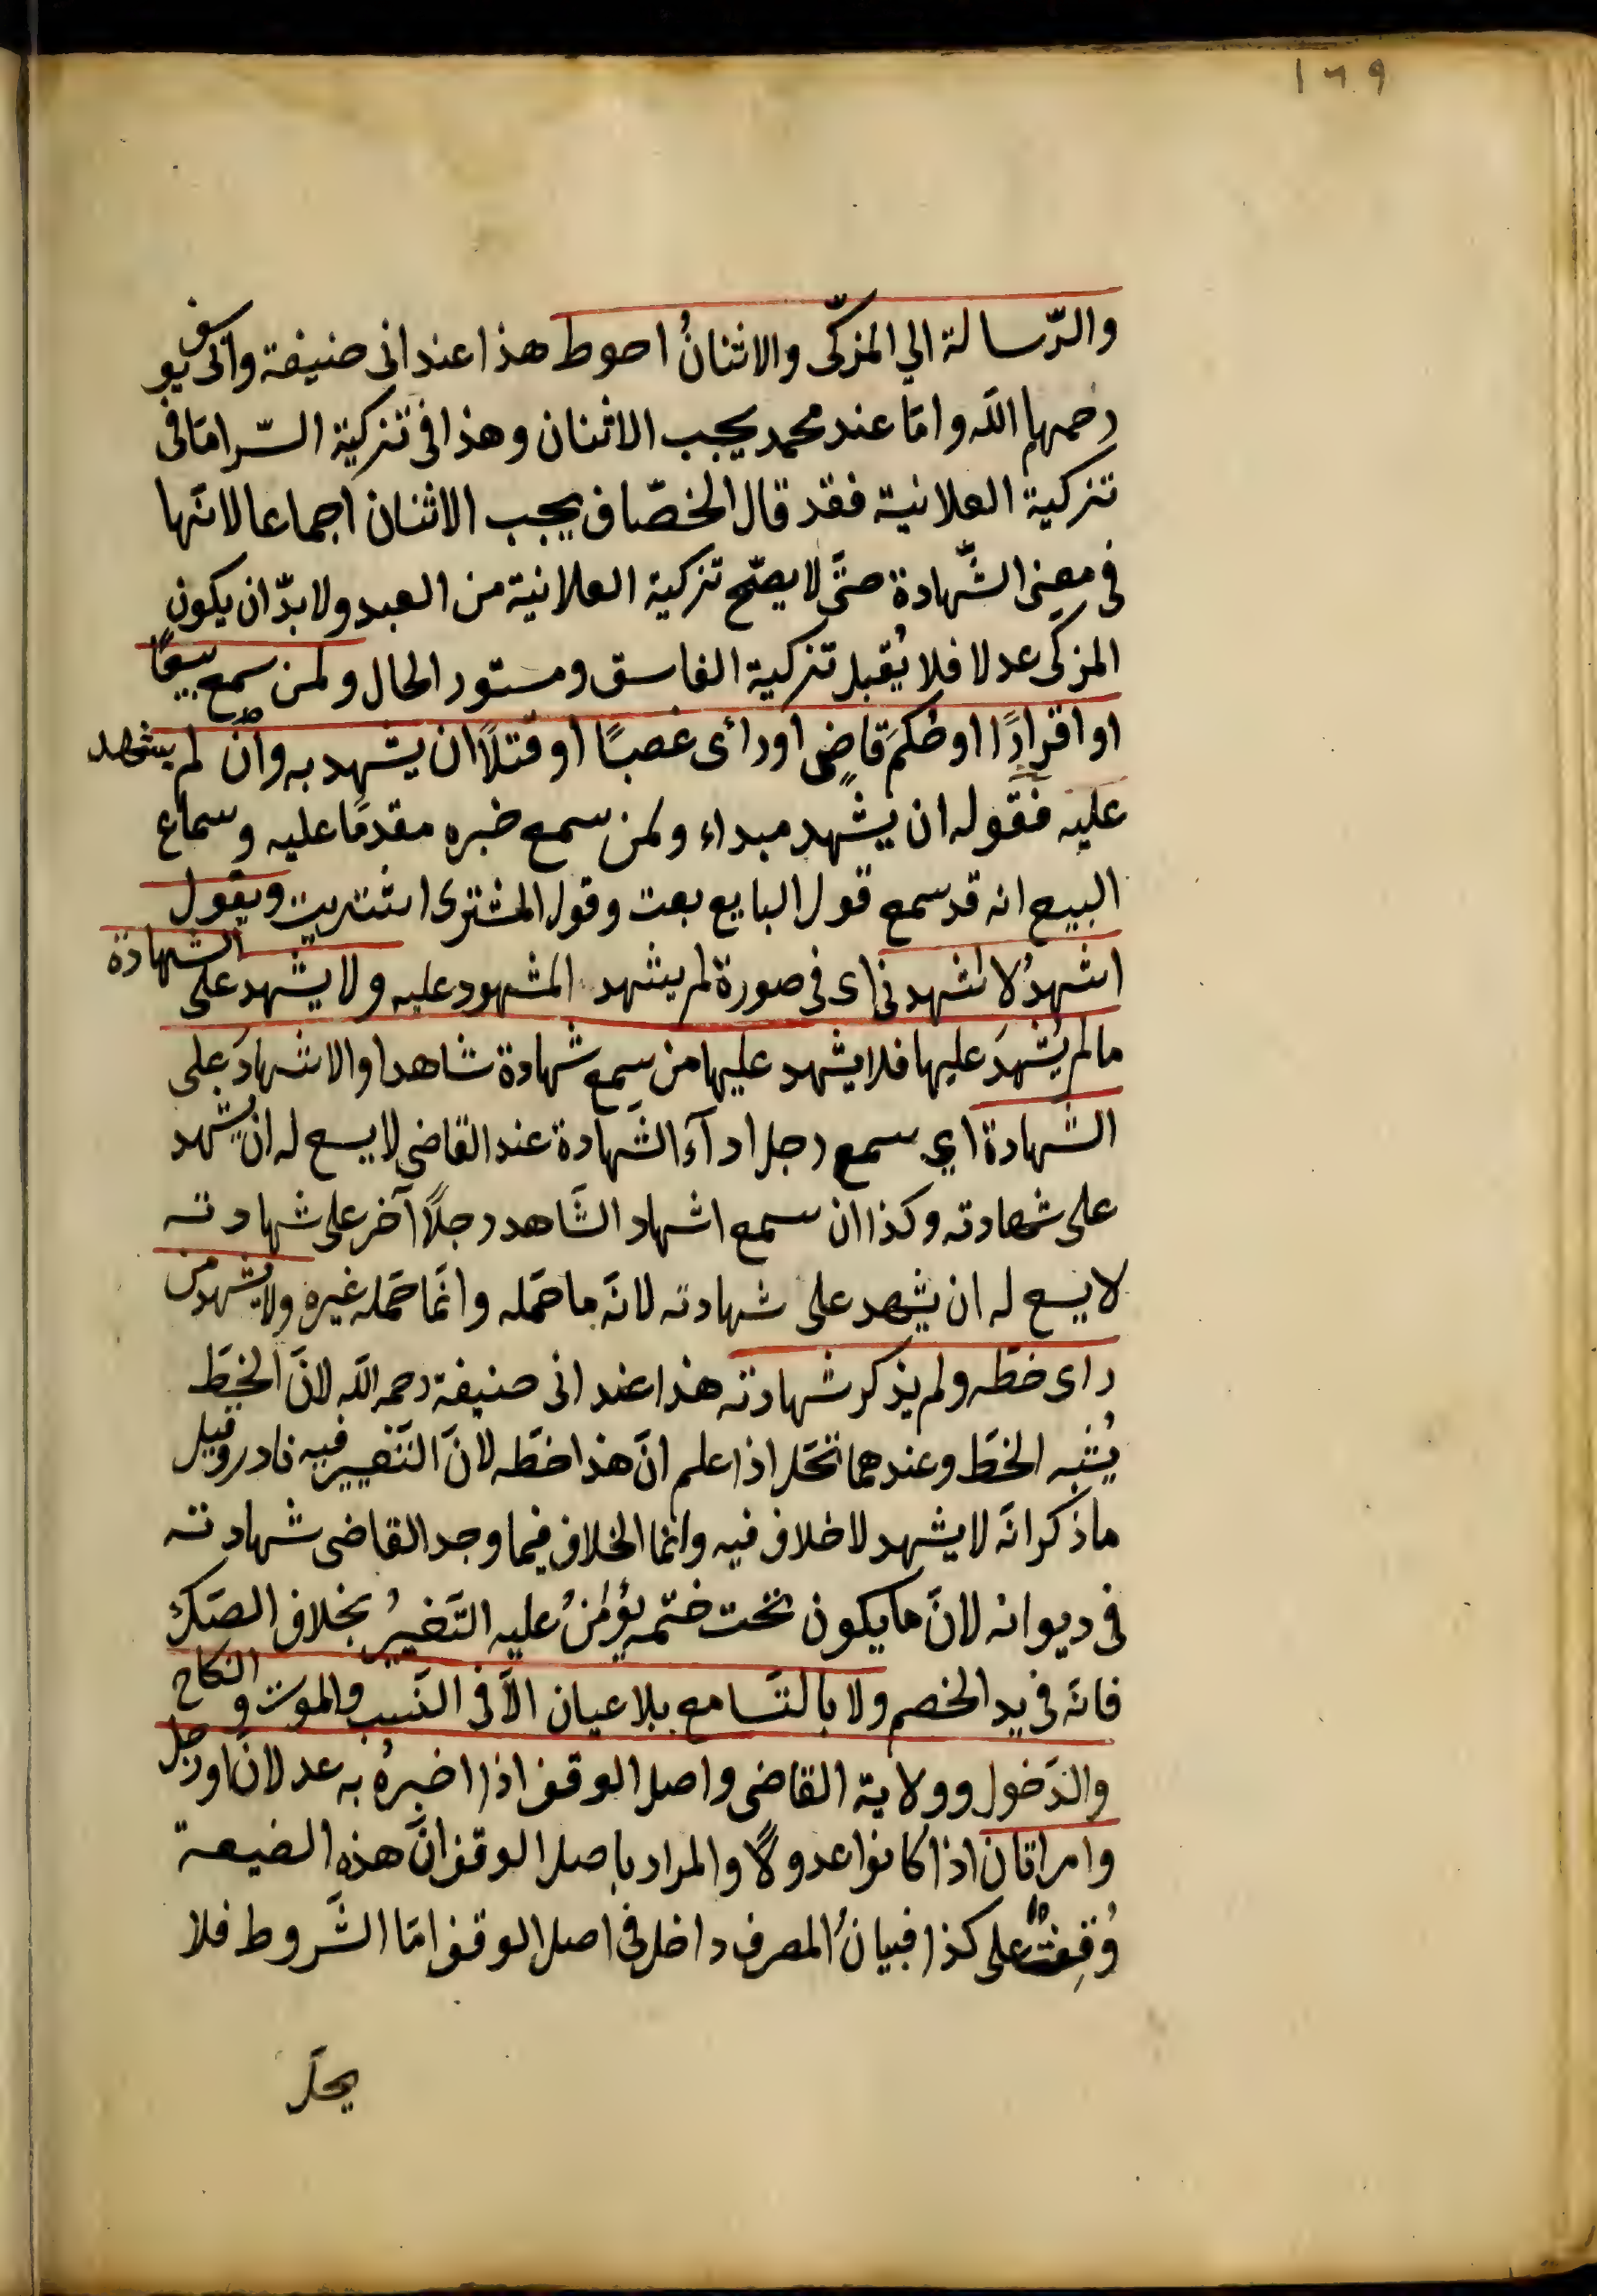 ١٦٩
والرّسالة الي المزكّى والاثنانُ احوط هذا عند ابى حنيفة وابى يوسف
رحمهما الله وامّا عند محمد يجب الاثنان وهذا فى تزكية السّر امّا فى
تزكية العلانية فقد قال الخصّاف يجب الاثنان اجماعا لانّها
فى معنى الشّهادة حتّى لا يصحّ تزكية العلانية من العبد ولا بدّ ان يكون
المزكى عدلا فلا يُقبل تزكية الفاسق ومستور الحال ولمن سمع بيعًا
او اقرارًا او حُكمَ قاضٍ او رأى غصبًا او قتلًا ان يشهد به وان لم يشهد
عليه فقوله ان يشهد مبداء ولمن سمع خبره مقدمًا عليه وسماع
البيع انه قد سمع قول البايع بعت وقول المشترى اشتريت ويقول
اشهدُ لا اشهدنى اى فى صورة لم يشهد المشهود عليه ولا يشهد على الشهادة
مالم يُشهدَ عليها فلا يشهد عليها من سمع شهادة شاهد او الاشهادَ على
الشهادة اي سمع رجل ادآء الشّهادة عند القاضى لا يسع له ان يشهد
على شهادته وكذا ان سمع اشهاد الشّاهد رجلًا آخر على شهادته
لا يسع له ان يشهد على شهادته لانّه ما حمّله وانّما حمّله غيره ولا يشهد من
راى خطّه ولم يذكر شهادته هذا عند ابى حنيفة رحمه الله لانّ الخطّ
يُشبه الخطّ وعندهما تحلّ اذا علم انّ هذا خطّه لانّ التّغيير فيه نادر وقيل
ما ذكر انّه لا يشهد لا خلاف فيه وانما الخلاف فيما وجد القاضى شهادته
فى ديوانه لانّ ما يكون تحت ختمه يؤمَنُ عليه التّغييرُ بخلاف الصّك
فانّه فى يد الخصم ولا بالتّسامع بلا عيان الّا فى النّسب والموت والنكاح
والدّخول وولاية القاضى واصل الوقف اذا اخبرهُ به عدلان او رجل
وامراتان اذا كانوا عدولًا والمراد باصل الوقف انّ هذه الضيعة
وُقِفتْ على كذا فبيانُ المصرف داخل فى اصل الوقف امّا الشّروط فلا
يحلّ